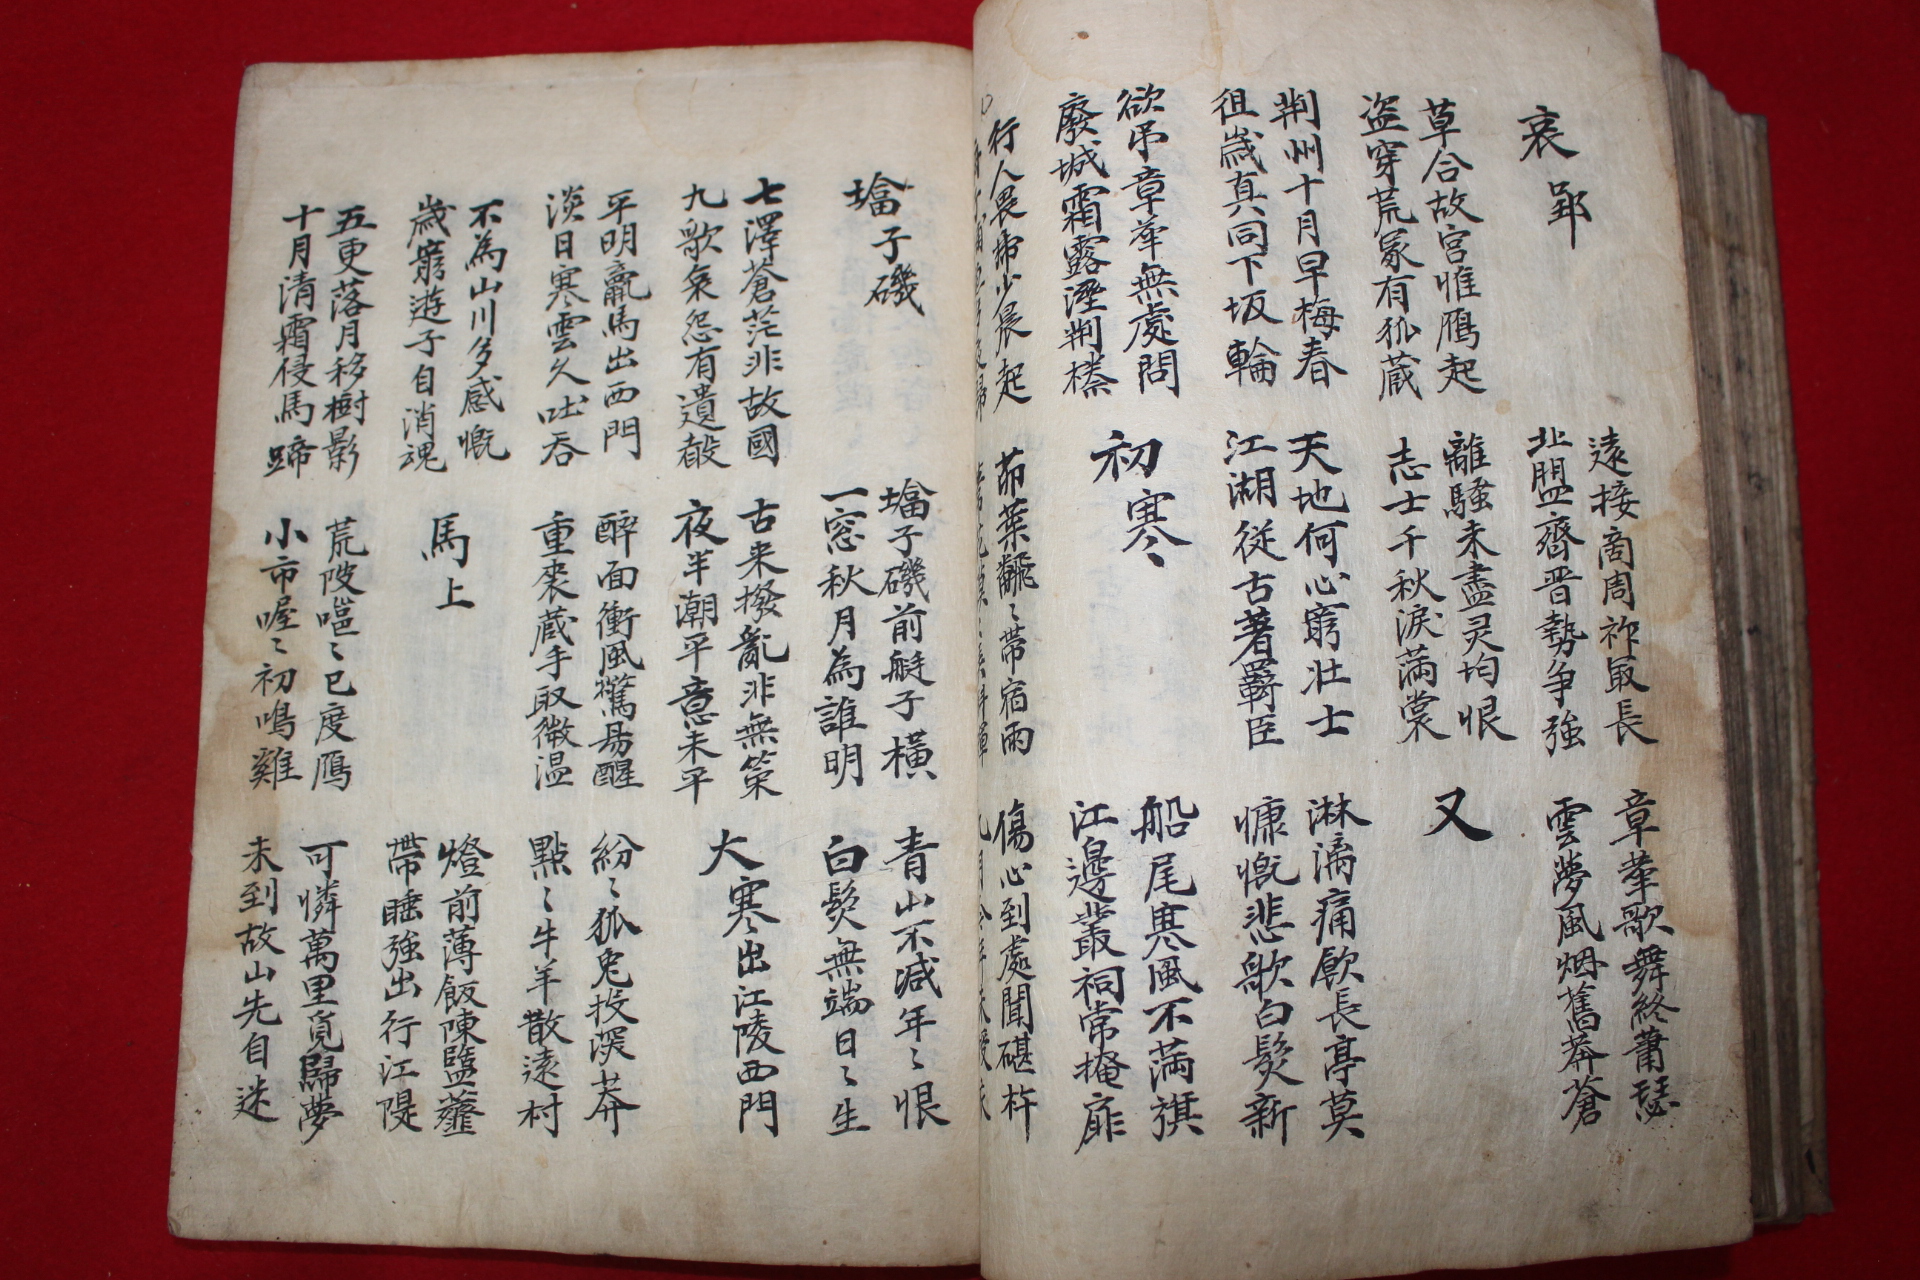 哀郢
遠接商周祚最長
北盟齊晋勢争強
章華歌舞終蕭瑟
雲夢風烟舊莽蒼
草合故宮惟鴈起
盜穿荒冢有狐蔵
離騷未盡灵均恨
志士千秋淚滿裳
又
荆州十月早梅春
徂歲真同下坂輪
天地何心窮壮士
江湖從古著羇臣
淋漓痛飲長亭莫
慷慨悲歌白髮新
欲吊章華無處問
廢城霜露溼荆榛
初寒
船尾寒風不滿旗
江邊叢祠常掩扉
行人畏虎少晨起
茆葉翻〻帶宿雨
傷心到處聞碪杵
塔子磯
塔子磯前艇子橫
一窓秋月為誰明
青山不减年〻恨
白髮無端日〻生
七澤蒼茫非故國
九歌哀怨有遺聲
古来撥亂非無策
夜半潮平意未平
大寒出江陵西門
平明羸馬出西門
淡日寒雲久吐吞
醉面衝風驚易醒
重裘蔵手取微温
紛〻狐兔投深莽
點〻牛羊散遠村
不為山川多感慨
歲窮遊子自消魂
馬上
燈前薄飯陳鹽虀
帶睡強出行江隄
五更落月移樹影
十月清霜侵馬蹄
荒陂嗈〻已度鴈
小市喔〻初鳴雞
可憐萬里覓歸夢
未到故山先自迷